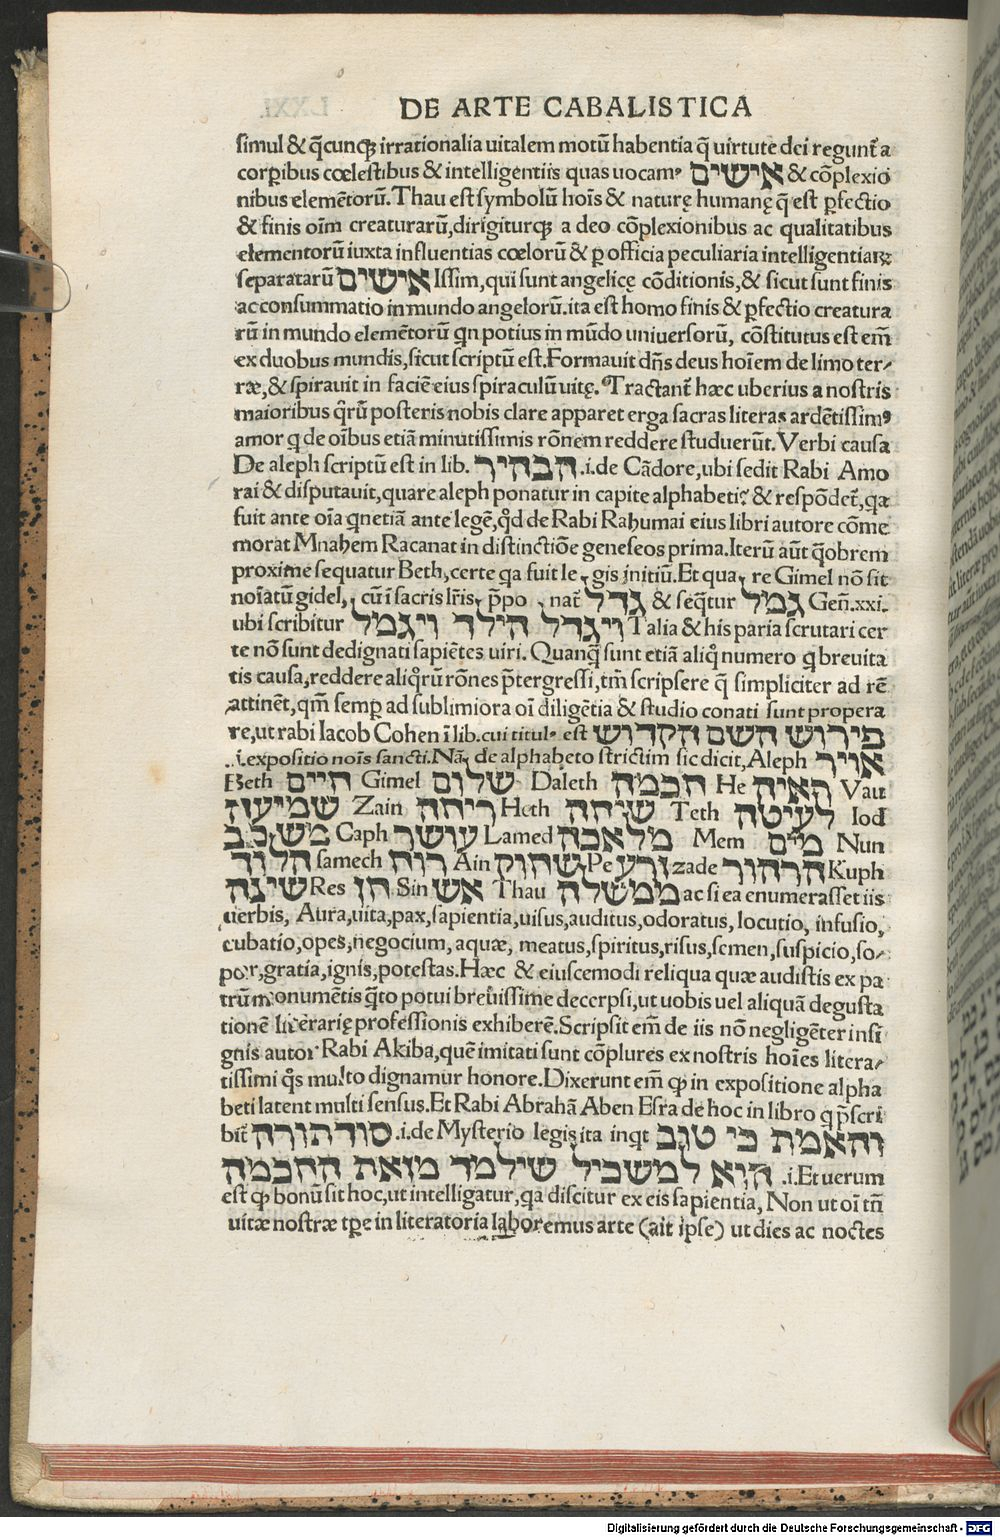 DE ARTE CABALISTICA
simul & q̃cunqꝫ irrationalia uitalem motũ habentia q̃ uirtute dei regunt᷑ a
corꝑibus cœlestibus & intelligentiis quas uocamꝰ אישים & cõplexio
nibus elemẽtorũ. Thau est symbolũ hoĩs & naturę humanę q̃ est ꝑfectio
& finis oĩm creaturarũ, dirigiturqꝫ a deo cõplexionibus ac qualitatibus
elementorũ iuxta influentias cœlorũ & ꝑ officia peculiaria intelligentiaꝝ
separatarũ אישים Issim, qui sunt angelicę cõditionis, & sicut sunt finis
ac consummatio in mundo angelorũ. ita est homo finis & ꝑfectio creatura
rũ in mundo elemẽtorũ qn potius in mũdo uniuersorũ, cõstitutus est em̃
ex duobus mundis, sicut scriptũ est. Formauit dñs deus hoĩem de limo ter⸗
ræ, & spirauit in faciẽ eius spiraculũ uitę. Tractant᷑ hæc uberius a nostris
maioribus q̃rũ posteris nobis clare apparet erga sacras literas ardẽtissimꝰ
amor ꝙ de oĩbus etiã minutissimis rõnem reddere studuerũt. Verbi causa
De aleph scriptũ est in lib. הבהיר .i. de Cãdore, ubi sedit Rabi Amo
rai & disputauit, quare aleph ponatur in capite alphabeti? & respõdet᷑, qa
fuit ante oĩa qnetiã ante legẽ, qd̃ de Rabi Raḥumai eius libri autore cõme
morat Mnaḥem Racanat in distinctiõe geneseos prima. Iterũ aũt q̃obrem
proxime sequatur Beth, certe qa fuit legis initiũ. Et quare Gimel nõ sit
noĩatũ gidel, cũ ĩ sacris lr̃is p̃ponat᷑ גדל & seq̃tur גמל Geñ. xxi.
ubi scribitur ויגדל הילד ויגמל Talia & his paria scrutari cer
te nõ sunt dedignati sapiẽtes uiri. Quanq̃ sunt etiã aliq̃ numero ꝙ breuita
tis causa, reddere aliq̃rũ rõnes p̃tergressi, tm̃ scripsere q̃ simpliciter ad rẽ
attinẽt, qm̃ semꝑ ad sublimiora oĩ diligẽtia & studio conati sunt propera
re, ut rabi Iacob Cohen ĩ lib. cui titulꝰ est פירוש השם הקדוש
.i. expositio noĩs sancti. Nã de alphabeto strictim sic dicit, Aleph אויר
Beth חיים Gimel שלום Daleth חכמה He ראיה Vau
שמיעה Zain ריחה Heth שיחה Teth לעיטה Iod
משכב Caph עושר Lamed מלאכה Mem מים Nun
הלוך samech רוח Ain שחוק Pe זרע zade הרהור Kuph
שינה Res חן Sin אש Thau ממשלה ac si ea enumerasset iis
uerbis, Aura, uita, pax, sapientia, uisus, auditus, odoratus, locutio, infusio,
cubatio, opes, negocium, aquæ, meatus, spiritus, risus, semen, suspicio, so⸗
por, gratia, ignis, potestas. Hæc & eiuscemodi reliqua quæ audistis ex pa
trũ monumẽtis q̃to potui breuissime decerpsi, ut uobis uel aliquã degusta
tionẽ literarię professionis exhiberẽ. Scripsit em̃ de iis nõ negligẽter insĩ
gnis autor Rabi Akiba, quẽ imitati sunt cõplures ex nostris hoĩes litera⸗
tissimi q̃s multo dignamur honore. Dixerunt em̃ ꝙ in expositione alpha
beti latent multi sensus. Et Rabi Abrahã Aben Esra de hoc in libro q̃ p̃scri
bit᷑ סוד תורה .i. de Mysterio legis ita inqt והאמת כי טוב
הוא למשכיל שילמד מזאת החכמה .i. Et uerum
est ꝙ bonũ sit hoc, ut intelligatur, qa discitur ex eis sapientia, Non ut oĩ tñ
uitæ nostræ tꝑe in literatoria laboremus arte (ait ipse) ut dies ac noctes
Digitalisierung gefördert durch die Deutsche Forschungsgemeinschaft - DFG